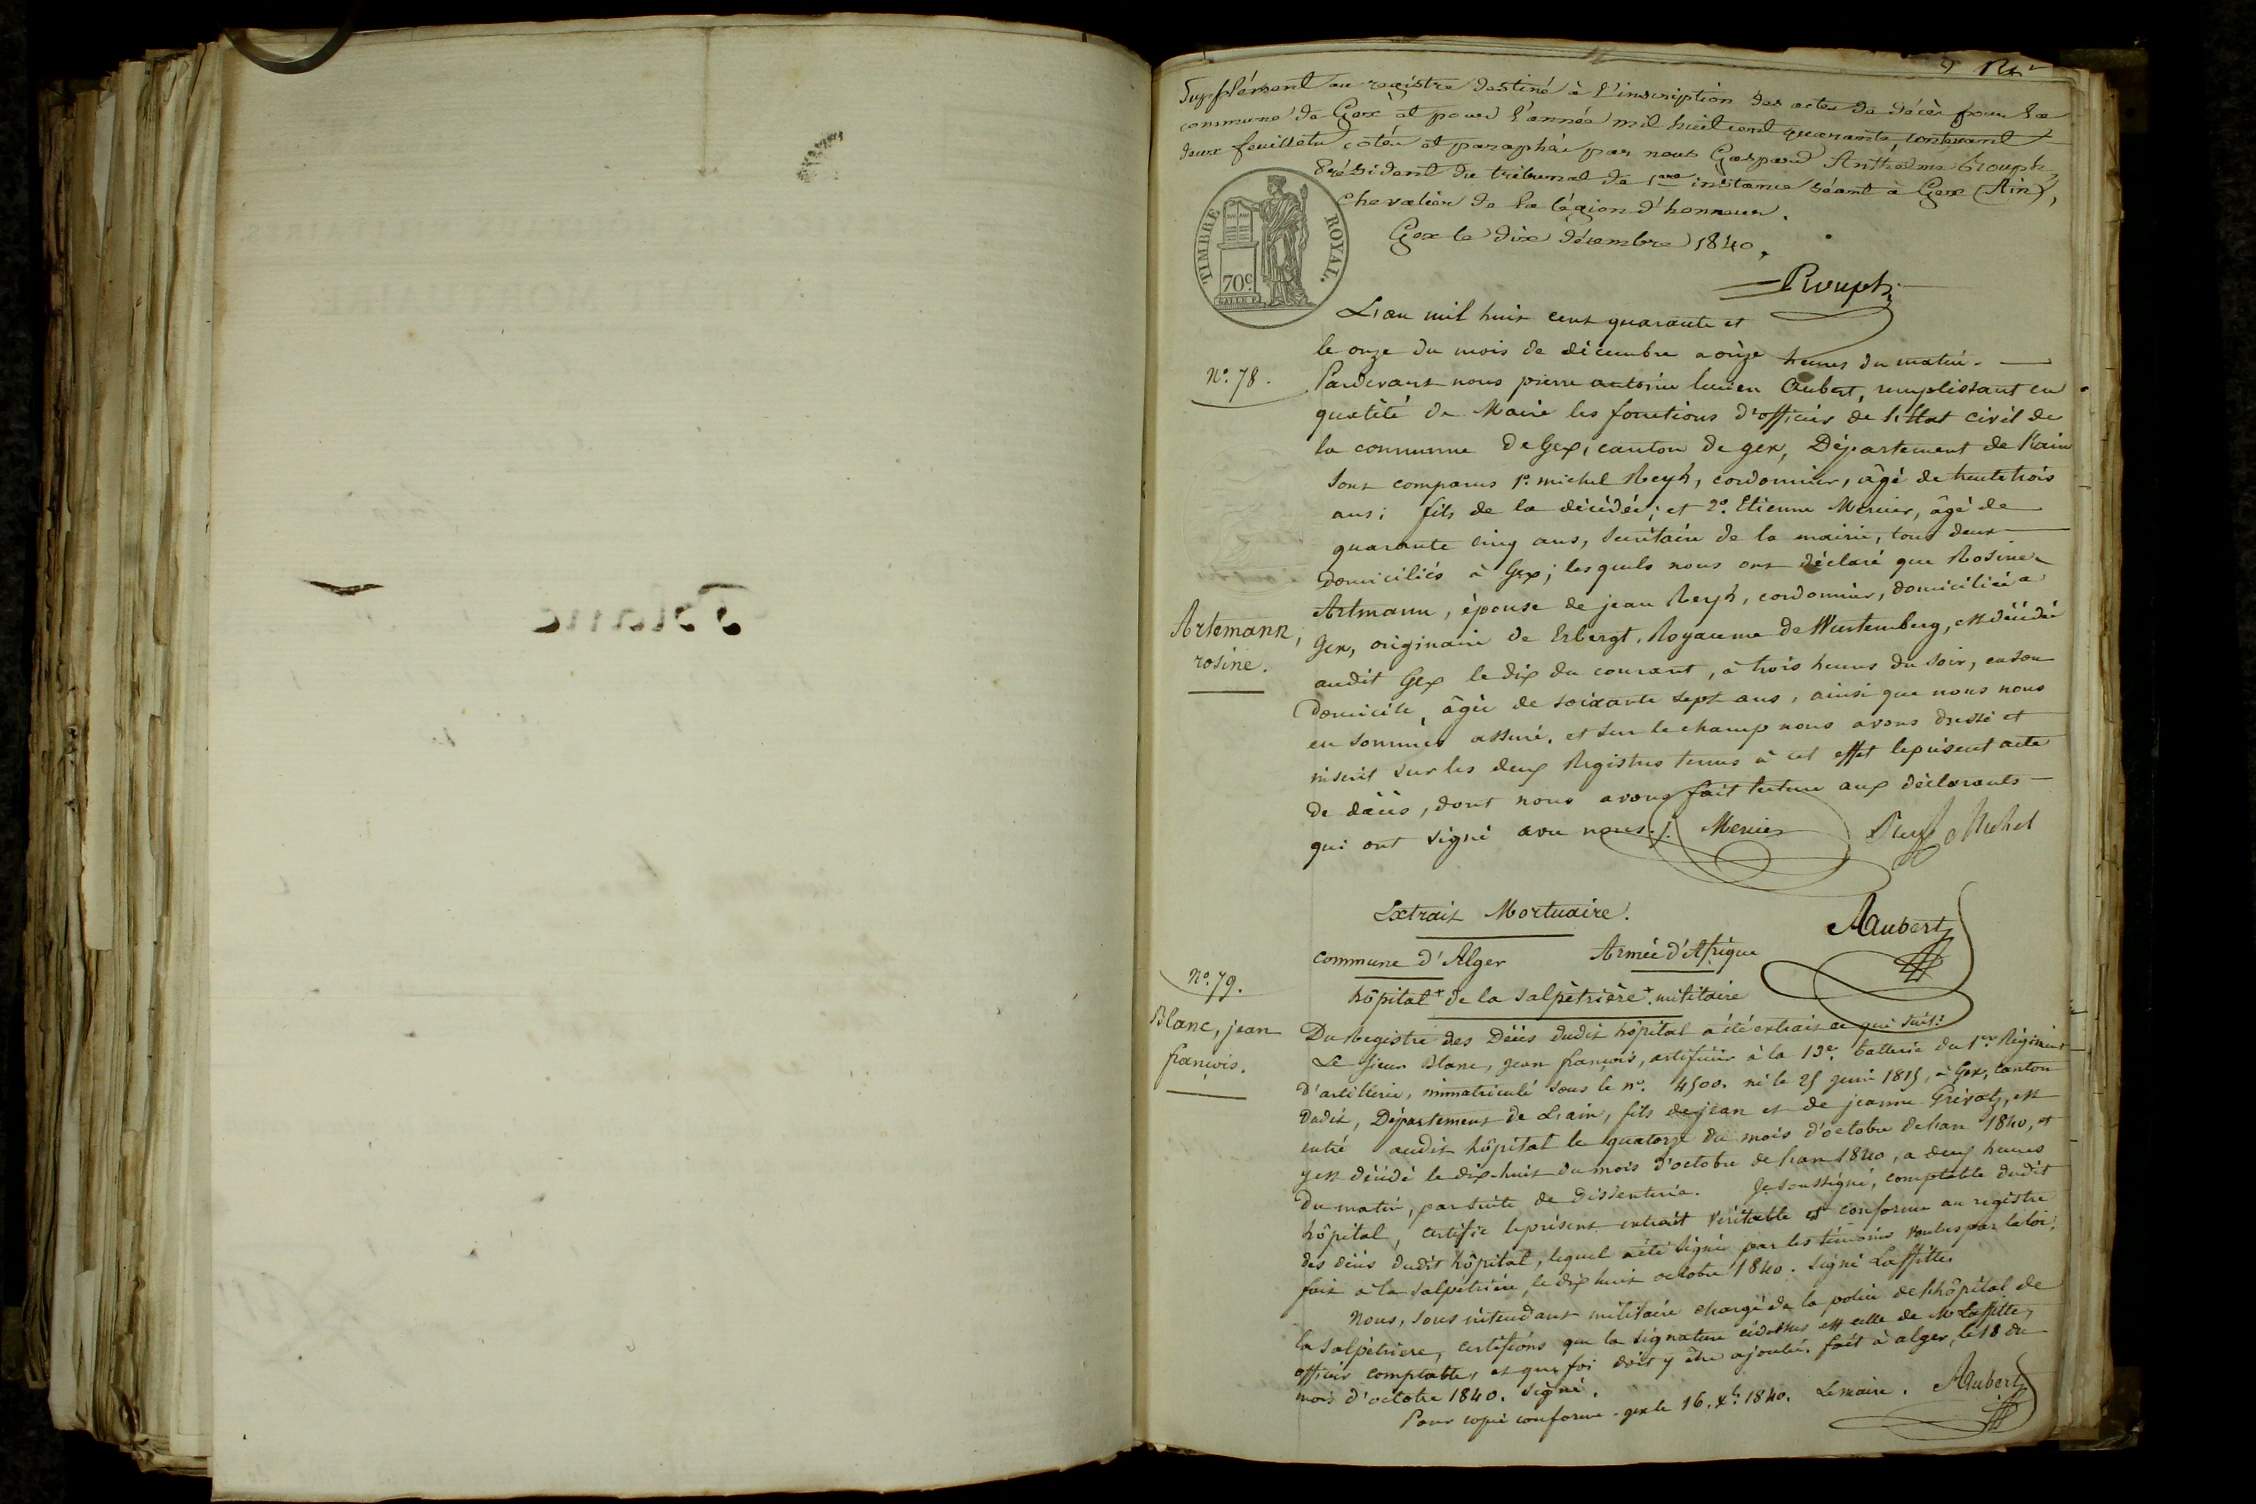 Supplément au registre destiné à l'inscription des actes de décès pour la
commune de Gex et pour l'année mil huit cent quarante, contenant
deux feuillets cotés et paraphés par nous Gaspard Anthelme Rouph,
Président du tribunal de 1ere instance séant à Gex (Ain),
chevalier de la légion d'honneur.
Gex le dix décembre 1840.
Rouph
TIMBRE ROYAL.
70c.
L'an mil huit cent quarante et
le onze du mois de décembre a onze heures du matin.
N.o 78.
Pardevant nous pierre antoine lucien Aubert, remplissant en
qualité de Maire les fonctions d'officier de l'état civil de
la commune de Gex, canton de gex, Département de l'ain
sont comparus 1.o michel Reyh, cordonnier, âgé de trente trois
ans; fils de la décédée; et 2.o Etienne Mercier, âgé de
quarante cinq ans, secrétaire de la mairie, tous deux
domiciliés à Gex; lesquels nous ont déclaré que Rosine
Artmann, épouse de jean Reyh, cordonnier, domiciliée a
Artemann,
rosine.
Gex, originaire de Erbergt, Royaume de Wurtemberg, est décédée
audit Gex le dix du courant, à trois heures du soir, en son
domicile, âgée de soixante sept ans, ainsi que nous nous
en sommes assuré, et sur le champ nous avons dressé et
inscrit sur les deux Registres tenus à cet effet le présent acte
de décès, dont nous avons fait lecture aux déclarants
qui ont signé avec nous./. Mercier Reyh Michel
Extrait Mortuaire.
AAubert
commune d'Alger Armée d'Afrique
hôpital + de la salpètrière + militaire
N.o 79.
Blanc, jean
françois.
Du Registre des Décès dudit hôpital a été extrait ce qui suit:
Le sieur Blanc, jean françois, artificier à la 13e. batterie du 1er Régiment
d'artillerie, immatriculé sous le n.o 4500. né le 25 juin 1815, à Gex, canton
dudit, Département de L'ain, fils de jean et de jeanne Grivatz, est
entré audit hôpital le quatorze du mois d'octobre de l'an 1840, et
y est décédé le dix-huit du mois d'octobre de l'an 1840, a deux heures
du matin, par suite de dissenterie. Je soussigné, comptable dudit
hôpital, certifie le présent extrait véritable et conforme au registre
des décès dudit hôpital, lequel a été signé par les témoins voulus par la loi.
fait à la salpétrière, le dix huit octobre 1840. signé Laffitte.
Nous, sous intendant militaire chargé de la police de l'hôpital de
la salpétriere, certifions que la signature cidessus est celle de Mr Laffitte,
officier comptable, et que foi doit y être ajoutée. fait à alger, le 18 du
mois d'octobre 1840. signé.
Pour copie conforme. gex le 16. Xb. 1840. Le maire. AAubert